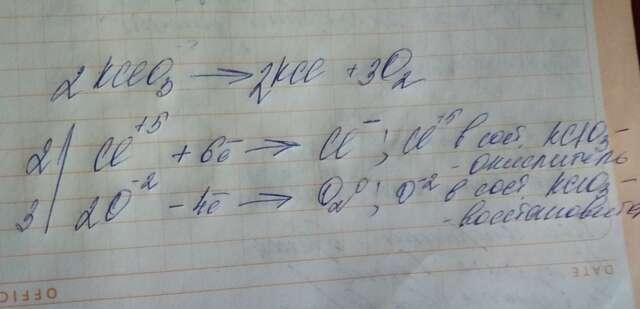 2KClO₃ → 2KCl + 3O₂
2 | Cl⁺⁵ + 6ē → Cl⁻; Cl⁺⁵ в сост. KClO₃ -
- окислитель
3 | 2O⁻² - 4ē → O₂⁰; O⁻² в сост. KClO₃ -
- восстановите
OFFIC
DATE